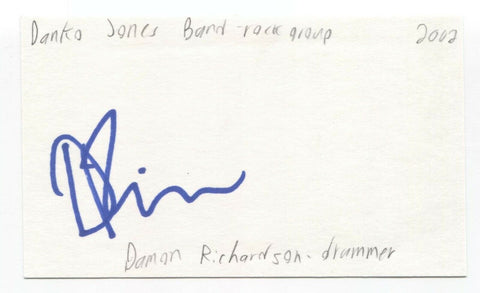 Danko Jones Band - rock group 2002
Damon Richardson - drummer